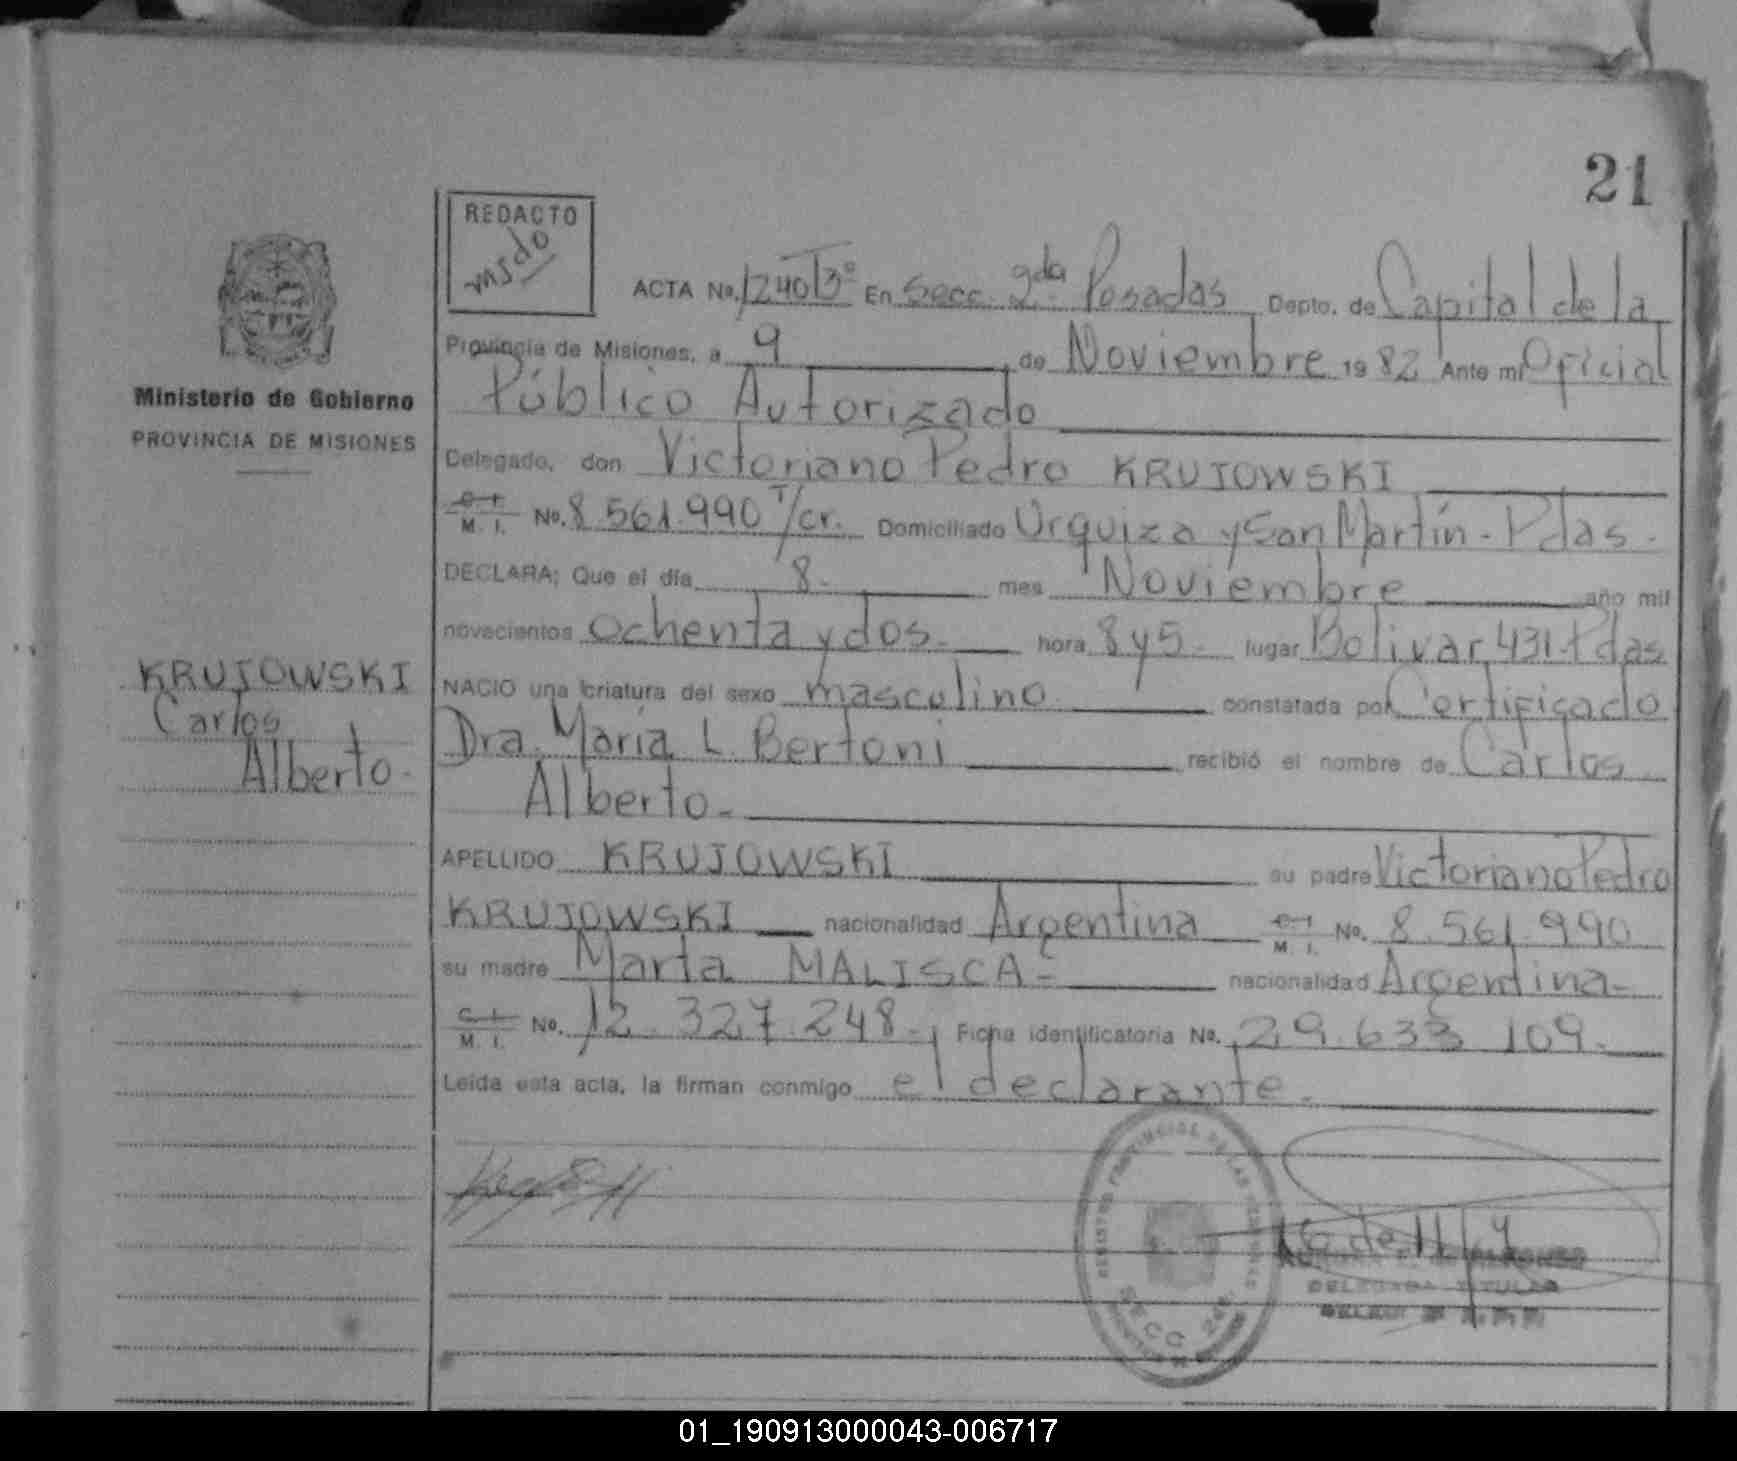 21
REDACTO
msdo
ACTA No. 1240 T3º En Secc. 2da. Posadas Depto. de Capital de la
Provincia de Misiones, a 9 de Noviembre 1982 Ante mi Oficial
Público Autorizado
Delegado, don Victoriano Pedro KRUJOWSKI
C. I.
M. I. No. 8.561.990 T/cr. Domiciliado Urquiza y San Martín - Pdas.
DECLARA; Que el día 8. mes Noviembre año mil
novecientos Ochenta y dos. hora 8 y 5. lugar Bolivar 431-Pdas
NACIO una criatura del sexo masculino. constatada por Certificado
Dra. María L. Bertoni recibió el nombre de Carlos
Alberto.
APELLIDO KRUJOWSKI su padre Victoriano Pedro
KRUJOWSKI nacionalidad Argentina C. I.
M. I. No. 8.561.990
su madre Marta MALISCA- nacionalidad Argentina-
C. I.
M. I. No. 12.327.248.- Ficha identificatoria No. 29.633.109.
Leída esta acta, la firman conmigo el declarante.
Ministerio de Gobierno
PROVINCIA DE MISIONES
KRUJOWSKI
Carlos
Alberto.
REGISTRO PROVINCIAL DE LAS PERSONAS
SECC 2da
DELEGADA TITULAR
01_190913000043-006717